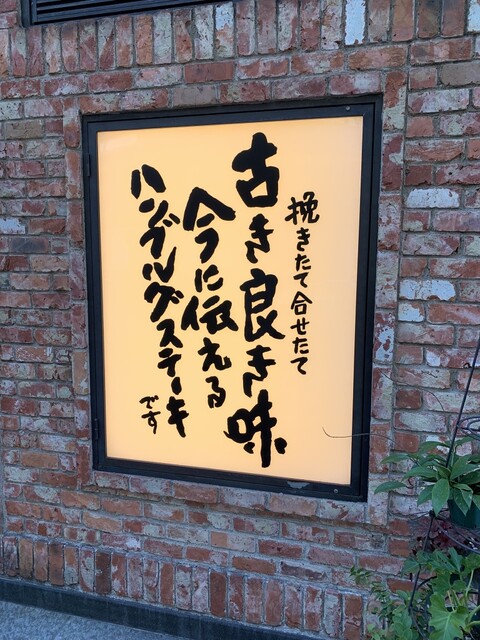 挽きたて合せたて
古き良き味
今に伝える
ハンブルグステーキ
です